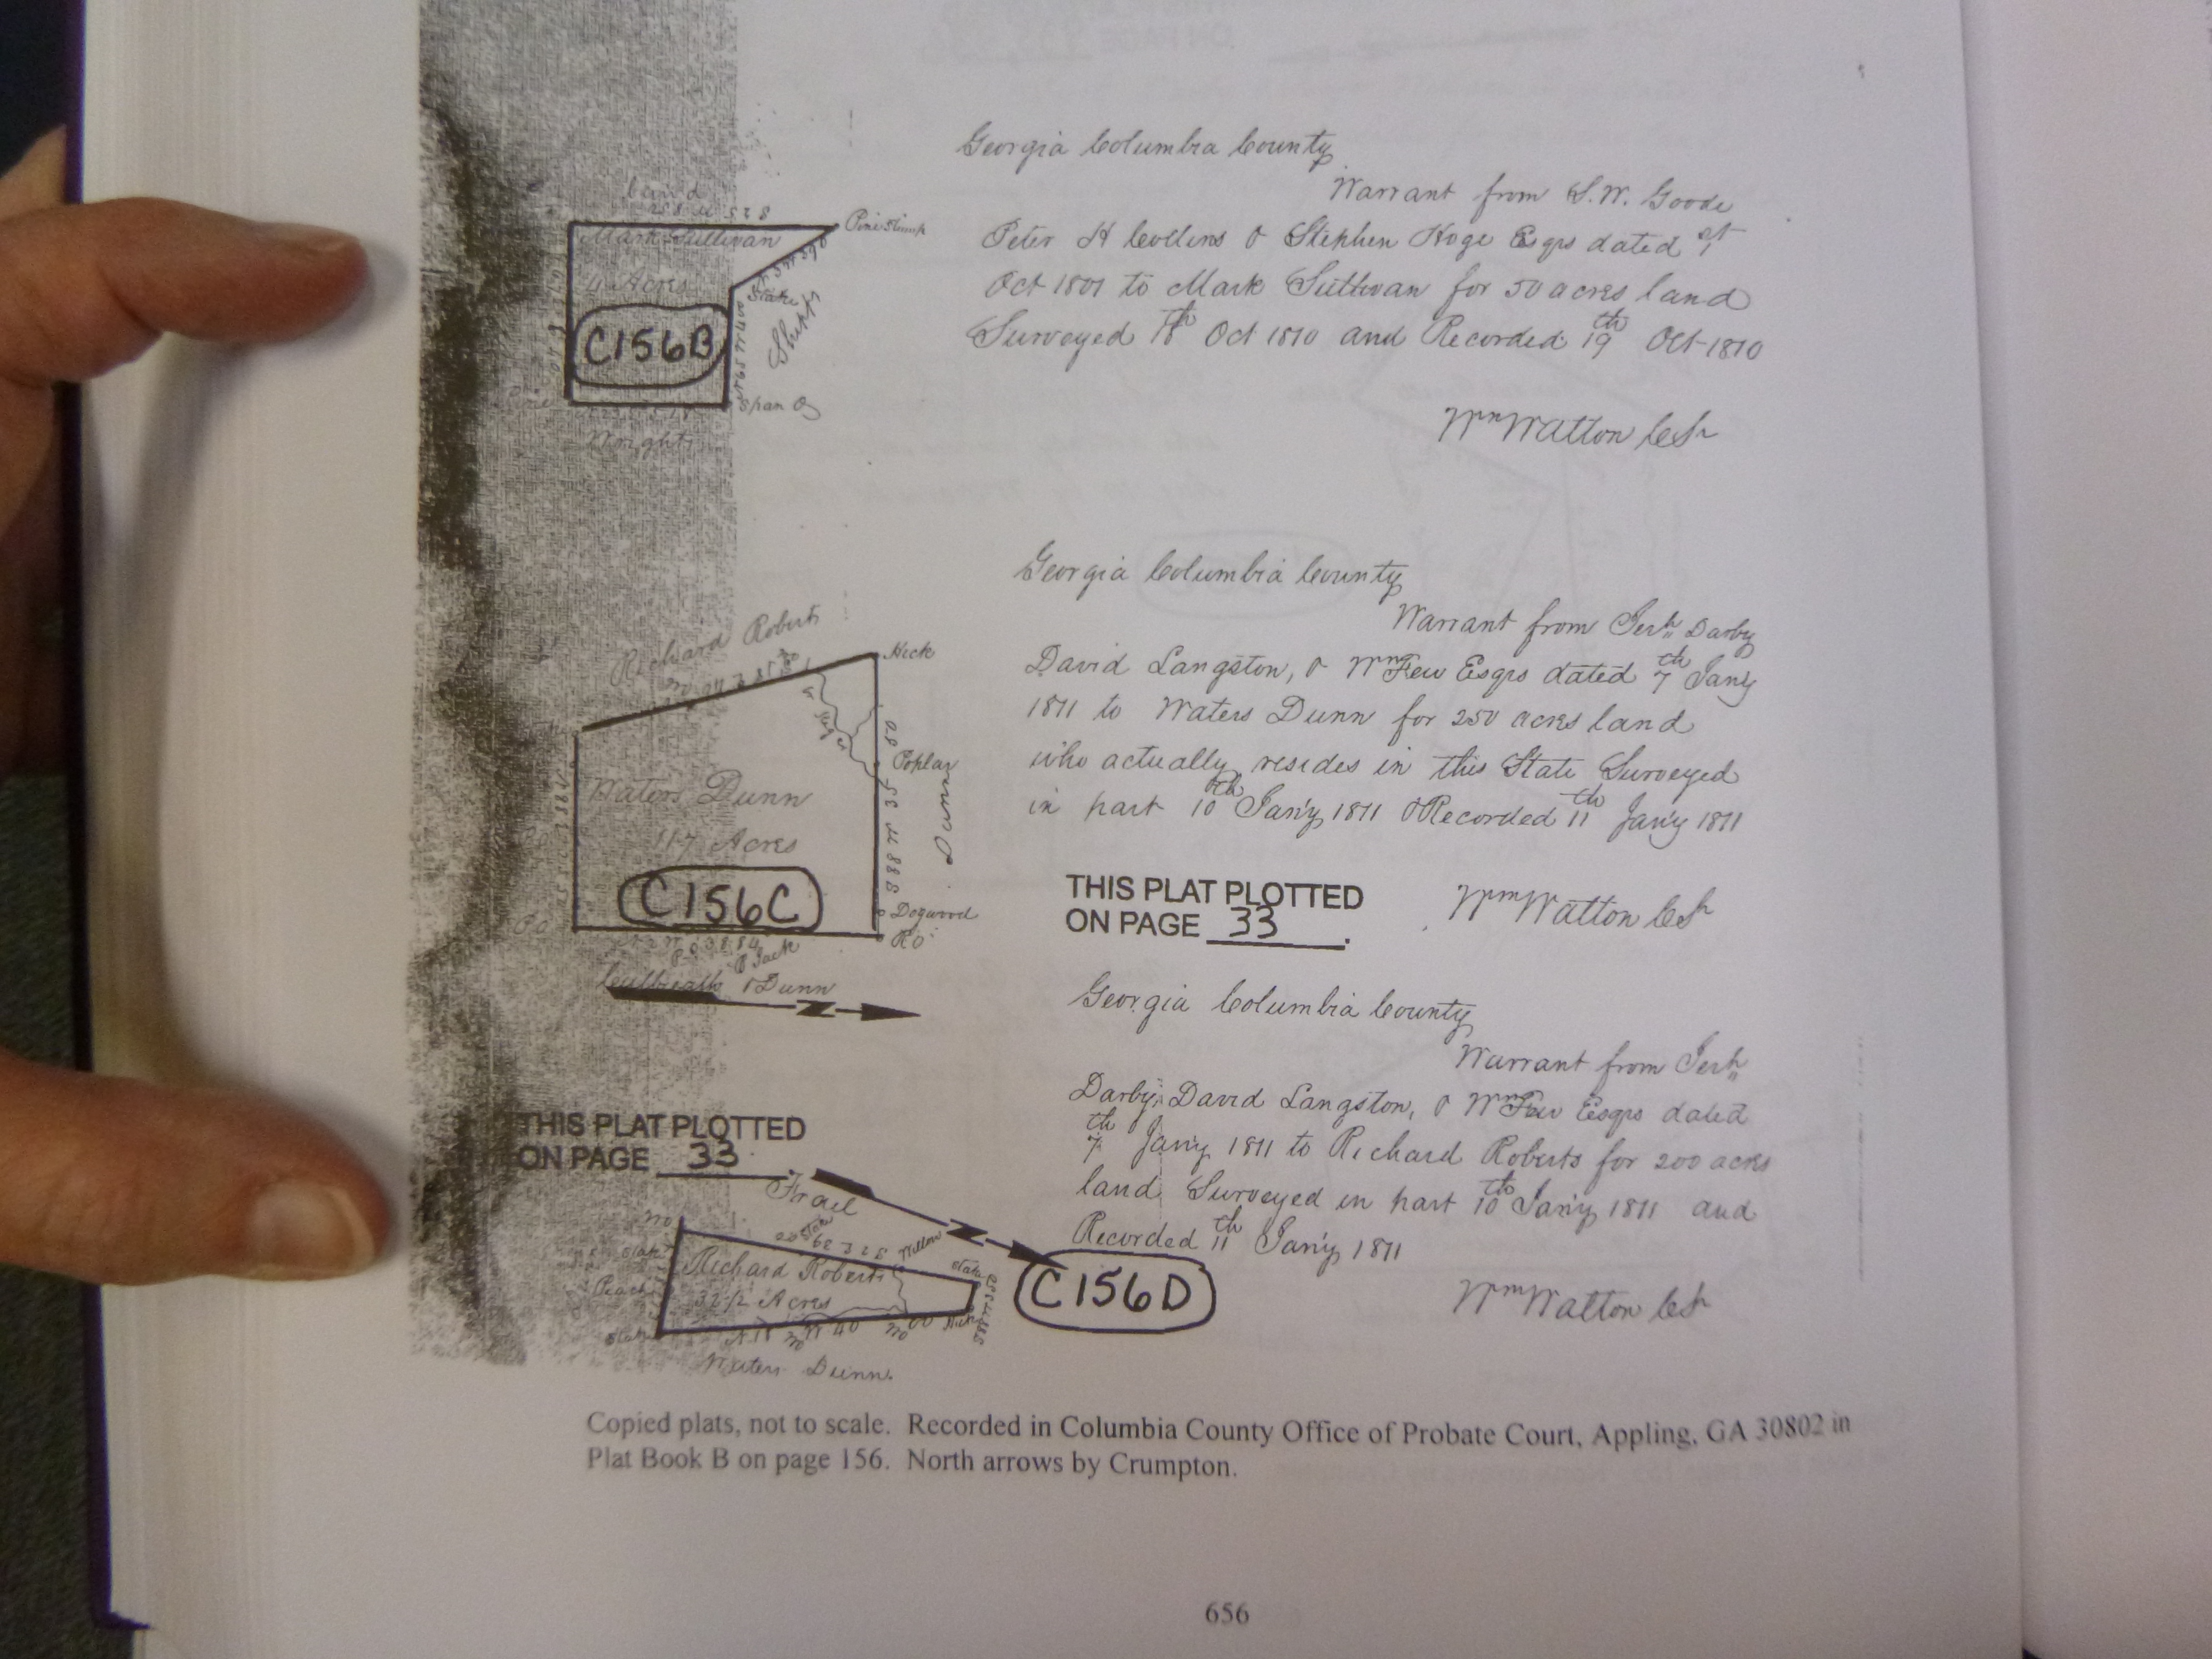 Land
Mark Sullivan
4 Acres
C156B
Pine Stump
Stake
Shipps
Span O
Wright
Georgia Columbia County
Warrant from S.W. Goode
Peter H Collins & Stephen Hoge Esqrs dated 1st
Oct 1801 to Mark Sullivan for 50 acres land
Surveyed 18th Oct 1810 and Recorded 19th Oct 1810
Wm Watton CS
Richard Roberts
Hick
Poplar
Dunn
Waters Dunn
117 Acres
C156C
Dogwood
R O
B Jack
Culbreath & Dunn
Z
Georgia Columbia County
Warrant from Jerh Darby
David Langston, & Wm Few Esqrs dated 7th Jany
1811 to Waters Dunn for 250 acres land
who actually resides in this State Surveyed
in part 10th Jany 1811 & Recorded 11th Jany 1811
THIS PLAT PLOTTED
ON PAGE 33.
Wm Watton CS
Georgia Columbia County
Warrant from Jerh
Darby, David Langston, & Wm Few Esqrs dated
7th Jany 1811 to Richard Roberts for 200 acres
land Surveyed in part 10th Jany 1811 and
Recorded 11th Jany 1811
Wm Watton CS
THIS PLAT PLOTTED
ON PAGE 33.
Z
Willow
Stake
Stake
Peach
Richard Roberts
32 1/2 Acres
C156D
Stake
Hick
Waters Dunn.
Copied plats, not to scale. Recorded in Columbia County Office of Probate Court, Appling, GA 30802 in
Plat Book B on page 156. North arrows by Crumpton.
656